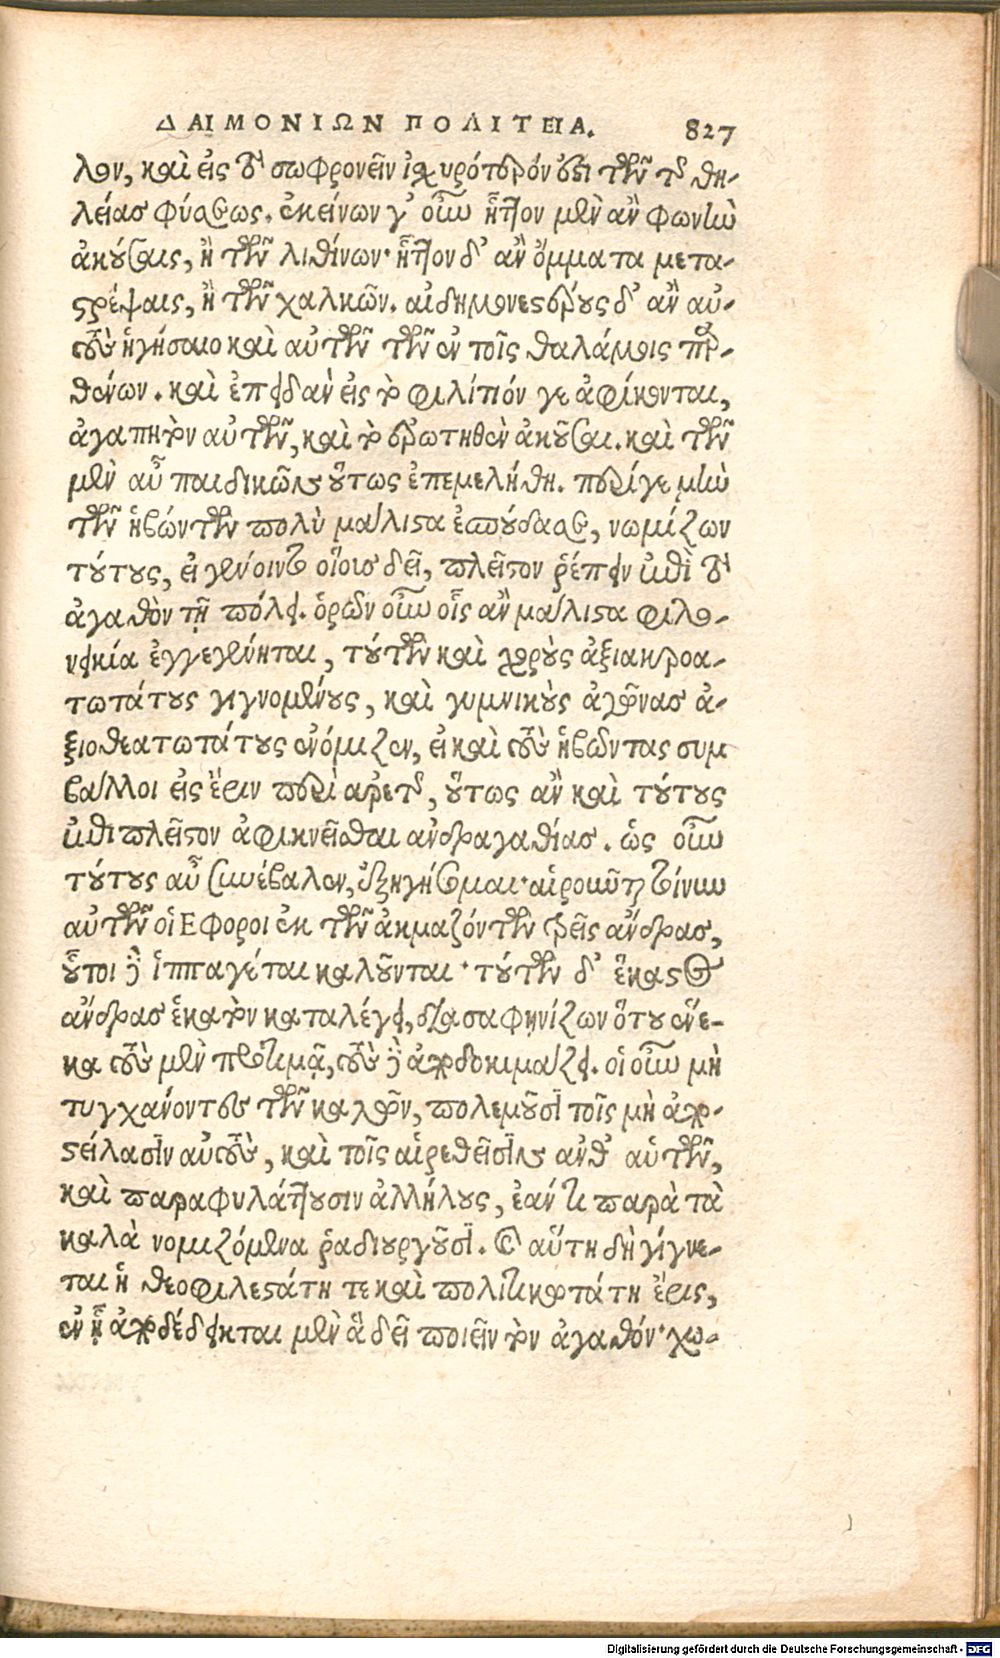 ΔΑΙΜΟΝΙΩΝ ΠΟΛΙΤΕΙΑ. 827
λον, καὶ εἰς τὸ σωφρονεῖν ἰσχυρότερόν ἐστι τῶν τῆς θη-
λείας φύσεως. ἐκείνων γ' οὖν ἧττον μὲν ἂν φωνὴν
ἀκούσαις, ἢ τῶν λιθίνων· ἧττον δ' ἂν ὄμματα μετα-
στρέψαις, ἢ τῶν χαλκῶν. αἰδημονεστέρους δ' ἂν αὐ-
τοὺς ἡγήσαιο καὶ αὐτῶν τῶν ἐν τοῖς θαλάμοις παρ-
θένων. καὶ ἐπειδὰν εἰς τὸ φιλίτιόν γε ἀφίκωνται,
ἀγαπητὸν αὐτῶν, καὶ τὸ ἐρωτηθὲν ἀκοῦσαι. καὶ τῶν
μὲν αὖ παιδικῶν οὕτως ἐπεμελήθη. περί γε μὴν
τῶν ἡβώντων πολὺ μάλιστα ἐσπούδασε, νομίζων
τούτους, εἰ γένοιντο οἵους δεῖ, πλεῖστον ῥέπειν ἐπὶ τὸ
ἀγαθὸν τῇ πόλει. ὁρῶν οὖν οἷς ἂν μάλιστα φιλο-
νεικία ἐγγεγένηται, τούτων καὶ χοροὺς ἀξιακροα-
τωτάτους γιγνομένους, καὶ γυμνικοὺς ἀγῶνας ἀ-
ξιοθεατωτάτους ἐνόμιζεν, εἰ καὶ τοὺς ἡβῶντας συμ
βάλλοι εἰς ἔριν περὶ ἀρετῆς, οὕτως ἂν καὶ τούτους
ἐπὶ πλεῖστον ἀφικνεῖσθαι ἀνδραγαθίας. ὡς οὖν
τούτους αὖ συνέβαλεν, ἐξηγήσομαι· αἱροῦνται τοίνυν
αὐτῶν οἱ Εφοροι ἐκ τῶν ἀκμαζόντων τρεῖς ἄνδρας,
οὗτοι δὲ ἱππαγέται καλοῦνται· τούτων δ' ἕκαστος
ἄνδρας ἑκατὸν καταλέγει, διασαφηνίζων ὅτου ἕνε-
κα τοὺς μὲν προτιμᾷ, τοὺς δὲ ἀποδοκιμάζει. οἱ οὖν μὴ
τυγχάνοντες τῶν καλῶν, πολεμοῦσι τοῖς μὴ ἀπο-
στείλασιν αὐτοὺς, καὶ τοῖς αἱρεθεῖσιν ἀνθ' αὑτῶν,
καὶ παραφυλάττουσιν ἀλλήλους, ἐάν τι παρὰ τὰ
καλὰ νομιζόμενα ῥαδιουργοῦσι. καὶ αὕτη δὴ γίγνε-
ται ἡ θεοφιλεστάτη τε καὶ πολιτικωτάτη ἔρις,
ἐν ᾗ ἀποδέδεικται μὲν ἃ δεῖ ποιεῖν τὸν ἀγαθόν· χω-
Digitalisierung gefördert durch die Deutsche Forschungsgemeinschaft - DFG